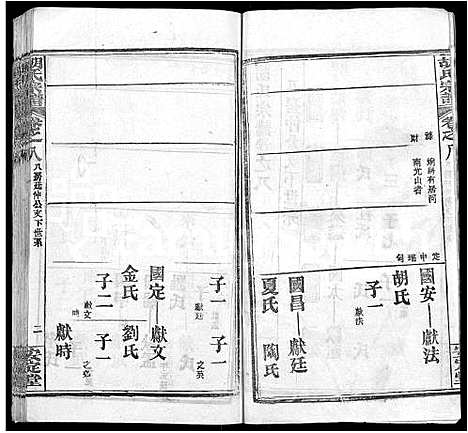 胡氏宗譜
卷之八
炳耕有居河
南光山者
國安—獻法
胡氏
子一
獻法
國昌—獻廷
夏氏 陶氏
子一 子一
獻廷 之英
國定—獻文
金氏 劉氏
子二 子一
獻文
獻時
胡氏宗譜
卷之八
八房廷仲公支下世系
二
安定堂